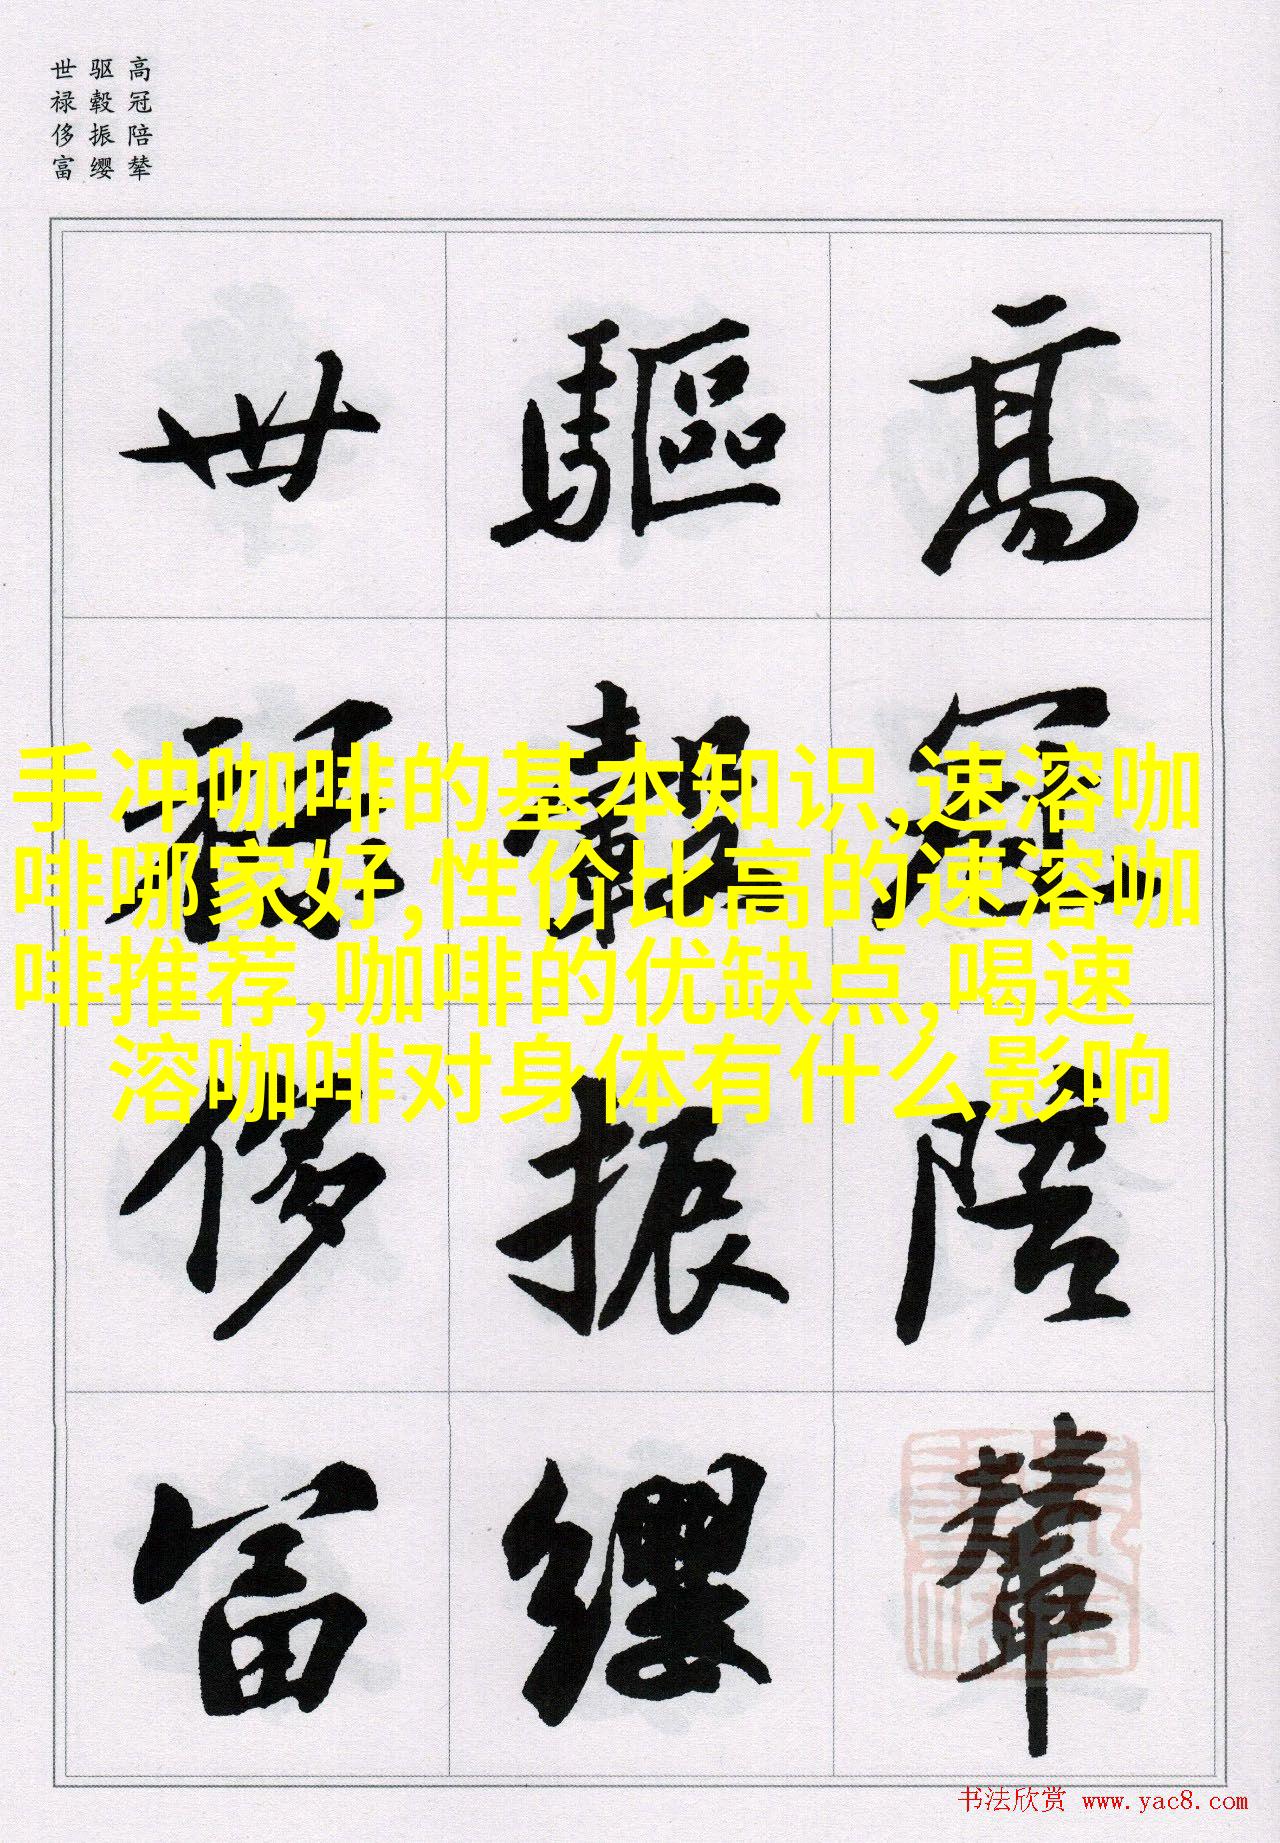 高冠陪辇
驱毂振缨
世禄侈富
高冠陪輦
驅轂振纓
世禄侈富
手冲咖啡的基本知识,速溶咖
啡哪家好,性价比高的速溶咖
啡推荐,咖啡的优缺点,喝速
溶咖啡对身体有什么影响
书法欣赏 www.yac8.com